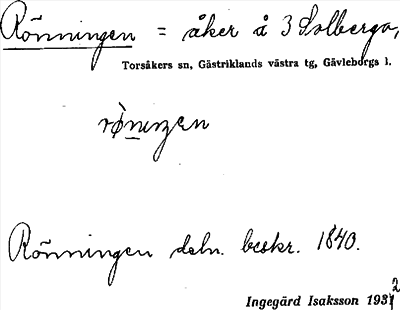 Rönningen = åker å 3 Solberga,
Torsåkers sn, Gästriklands västra tg, Gävleborgs l.
rø̀niŋen
Rönningen deln. beskr. 1840.
Ingegärd Isaksson 1932